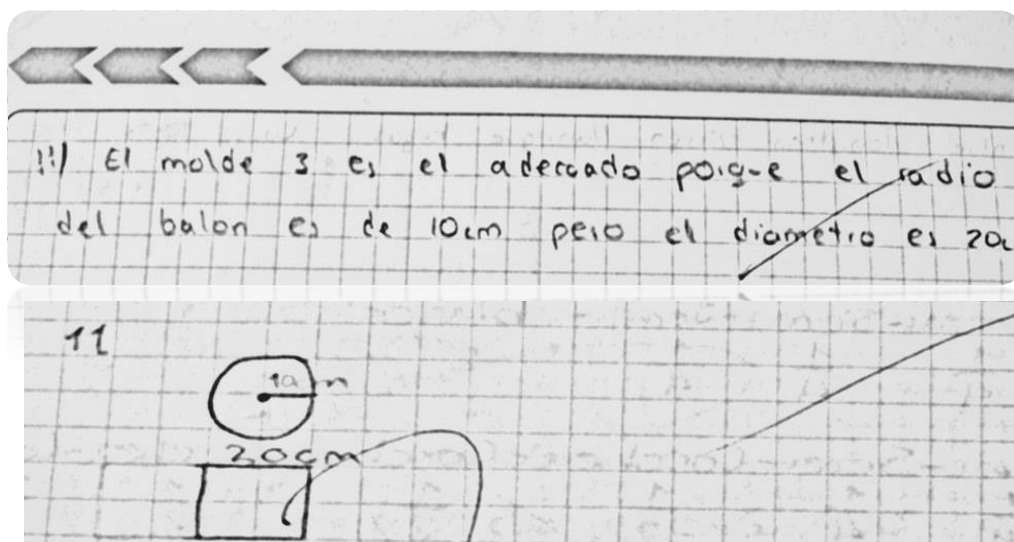 !!!) El molde 3 es el adecuado porque el radio
del balon es de 10cm pero el diametro es 20c
11
20cm